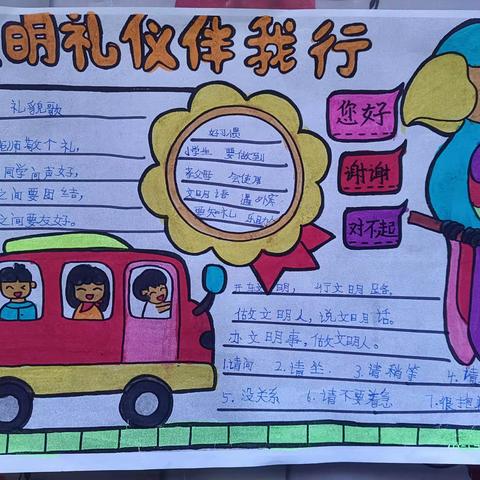 明礼仪伴我行
礼貌歌
个礼，
同学问声好，
之间要团结，
之间要友好。
好礼遇
小学生 要做到
文明语 遇外宾
您好
谢谢
对不起
文明， 行文明路。
做文明人，说文明话。
办文明事，做文明人。
1.请问 2.请坐. 3.请稍等 4.
5.没关系 6.请不要着急 7.很抱